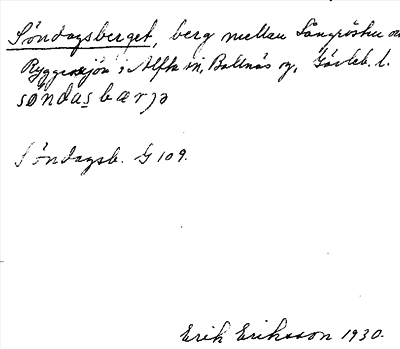 Söndagsberget, berg mellan Långrössen o
Ryggesjön i Alfta sn, Bollnäs sg, Gävleb. l.
söndasbærjə
Söndagsb. G 109.
Erik Eriksson 1930.